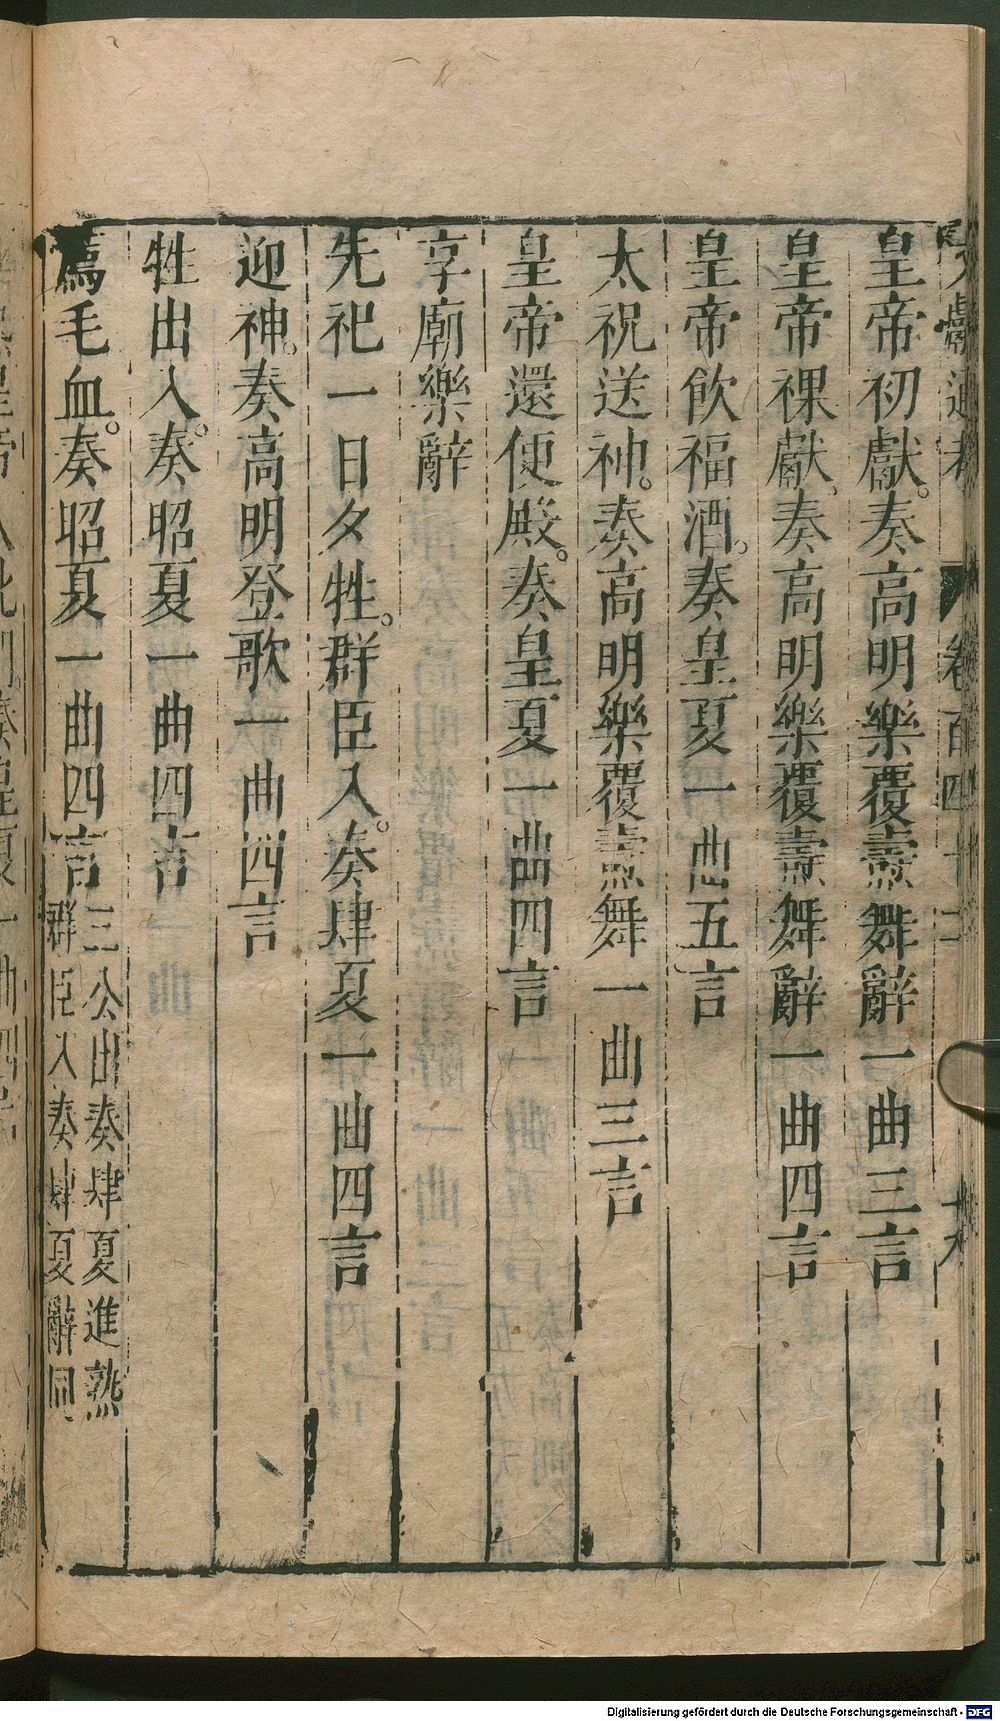 皇帝初獻。奏高明樂覆燾舞辭一曲三言
皇帝祼獻。奏高明樂覆燾舞辭一曲四言
皇帝飲福酒。奏皇夏一曲五言
太祝送神。奏高明樂覆燾舞一曲三言
皇帝還便殿。奏皇夏一曲四言
享廟樂辭
先祀一日夕牲。群臣入。奏肆夏一曲四言
迎神。奏高明登歌一曲四言
牲出入。奏昭夏一曲四言
薦毛血。奏昭夏一曲四言
三公出奏肆夏進熟
群臣入奏肆夏辭同
Digitalisierung gefördert durch die Deutsche Forschungsgemeinschaft - DFG